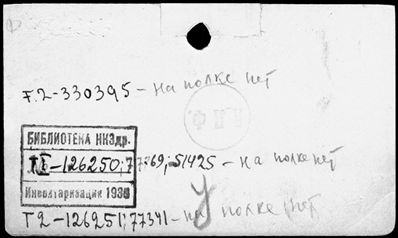 F.2-330395 - на полке нет
Л П Ф
БИБЛИОТЕКА НКЗдр.
T2-126250; 77369; 51425 - на полке нет
Инвентаризация 1936
У
T2-126251; 77341 - на полке нет